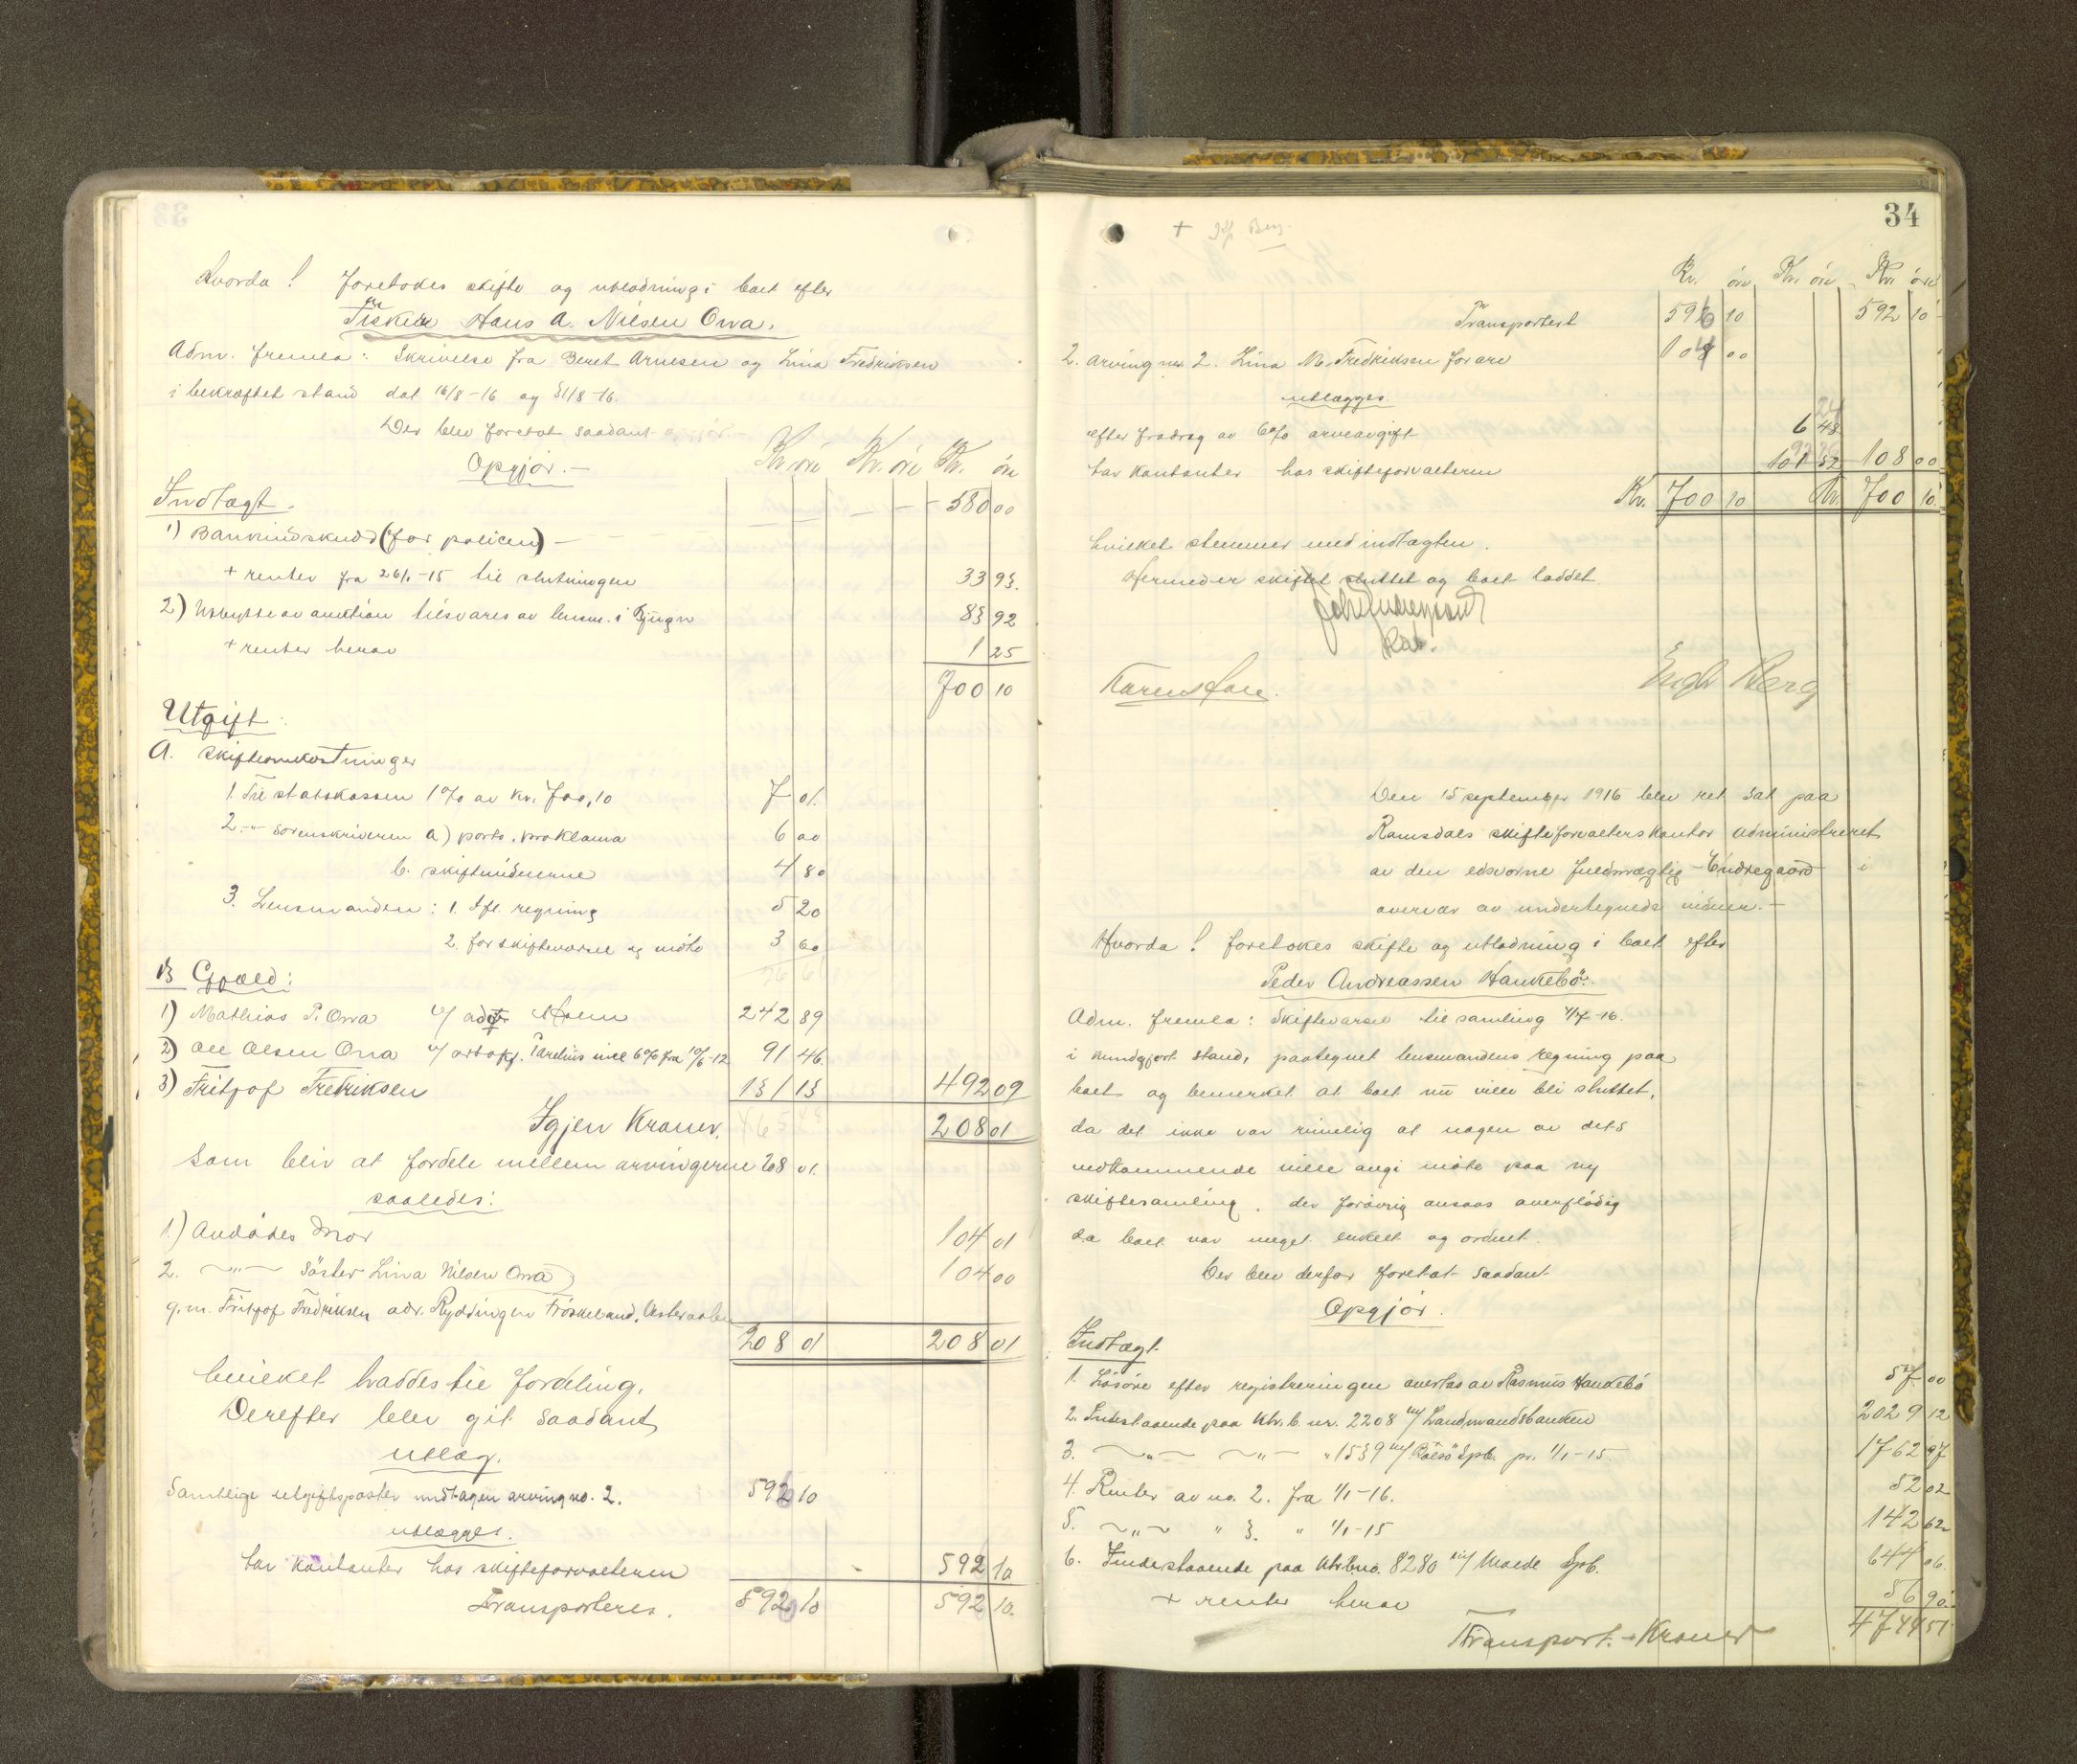 Hvorda! foretokes skifte og utlodning i boet efter
Fisker Hans A. Nilsen Orra.
Adm. fremla: Skrivelse fra Beret Arnesen og Lina Fredriksen
i bekræftet stand dat 16/8-16 og 31/8-16.
Der blev foretat saadant
Opgjör.-
Kr. öre Kr. öre Kr. öre
Indtægt.
580 00
1) Bankindskudd (for policen) -
+ renter fra 26/1-15 til slutningen 33 93
2) Utbytte av auktion tilsvares av lensm. i Bjugn 83 92
+ renter herav 1 25
700 10
Utgift.
A. Skifteomkostninger
1. Til statskassen 1% av kr. 700,10 7 01
2. -"- Sorenskriveren a) porto, proklama 6 00
b. skiftevidnerne 4 80
3. Lensmanden: 1. ifl. regning 5 20
2. for skiftevarsel og möte 3 60
B Gjæld:
1) Mathias P. Orra v/ adv. Holm 242 89
2) Ole Olsen Orra v/ inkl 6% fra 10/6-12 91 46
3) Fritjof Fredriksen 131 13 492 09
Igjen Kroner. 208 01
som bliv at fordele mellem arvingerne 208 01
saaledes:
1.) Avdödes mor 104 01
2. -"- söster Lina Nilsen Orra 104 00
g.m. Fritjof Fredriksen adr. Ryddingen Fröskeland, Vesteraalen
208 01 208 01
hvilket haddes til fordeling.
Derefter blev git saadant
utlæg.
Samtlige utgiftsposter undtagen arving no. 2. 592 10
utlægges.
tar kontanter hos skifteforvalteren 592 10
Transporteres. 592 10 592 10.
34
Kr. öre Kr. öre Kr. öre
Transportert 592 10 592 10
2. Arving nr. 2. Lina M. Fredriksen for arv 108 00
utlægges
efter fradrag av 6% arveavgift 6 48
tar kontanter hos skifteforvalteren 101 52 108 00
Kr. 700 10 Kr. 700 10
hvilket stemmer med indtægten.
Hermed er skiftet sluttet og boet loddet.
Engb Berg
Den 15 september 1916 blev ret sat paa
Ramsdals skifteforvalterskontor administreret
av den edsvorne fuldmægtig Endregaard i
overvær av undertegnede vidner.-
Hvorda! foretokes skifte og utlodning i boet efter
Peder Andreassen Hankebö.
Adm. fremla: Skiftevarsel til samling 4/7-16.
i kundgjort stand, paategnet lensmandens regning paa
boet og bemerket at boet nu ville bli sluttet,
da det ikke var rimelig at nogen av dets
vedkommende ville angi möte paa ny
skiftesamling, der forövrig ansaas overflödig
da boet var meget enkelt og ordnet.
Der blev derfor foretat saadant
Opgjör.
Indtægt
1. Lösöre efter registreringen overtas av Rasmus Hankebö 57 00
2. Indestaaende paa ktr.b. nr. 2208 m/ Landmandsbanken 2029 12
3. -"- -"- " 1539 m/ Spb. pr. 1/1-15 1762 97
4. Renter av no. 2. fra 1/1-16. 52 02
5. -"- " 3. " 1/1-15 142 62
6. Indestaaende paa ktrb.no. 8280 m/ Molde Spb. 644 06
+ renter herav 56 90
Transport. - Kroner 4744 51